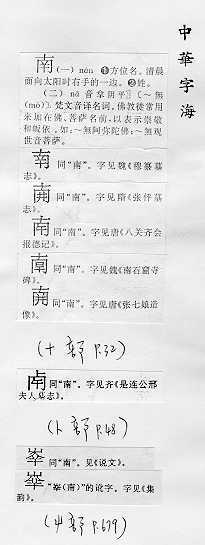 中華字海
南(一) nán ❶方位名。清晨
面向太阳时右手的一边。❷姓。
(二) nā 音拿阴平〖〜无
(mó)〗。梵文音译名词。佛教徒常用
来加在佛、菩萨名前,以表示崇敬
和皈依。如:〜無阿弥陀佛;〜無观
世音菩萨。
同“南”。字见魏《穆纂墓
志》。
同“南”。字见隋《张伏墓
志》。
同“南”。字见唐《八关齐会
报德记》。
同“南”。字见魏《南石窟寺
碑》。
同“南”。字见唐《张七娘造
像》。
(十部 P.32)
同“南”。字见齐《是连公邢
夫人墓志》。
(卜部 P.48)
同“南”。见《说文》。
“(南)”的讹字。字见《集
韵》。
(屮部 P.679)